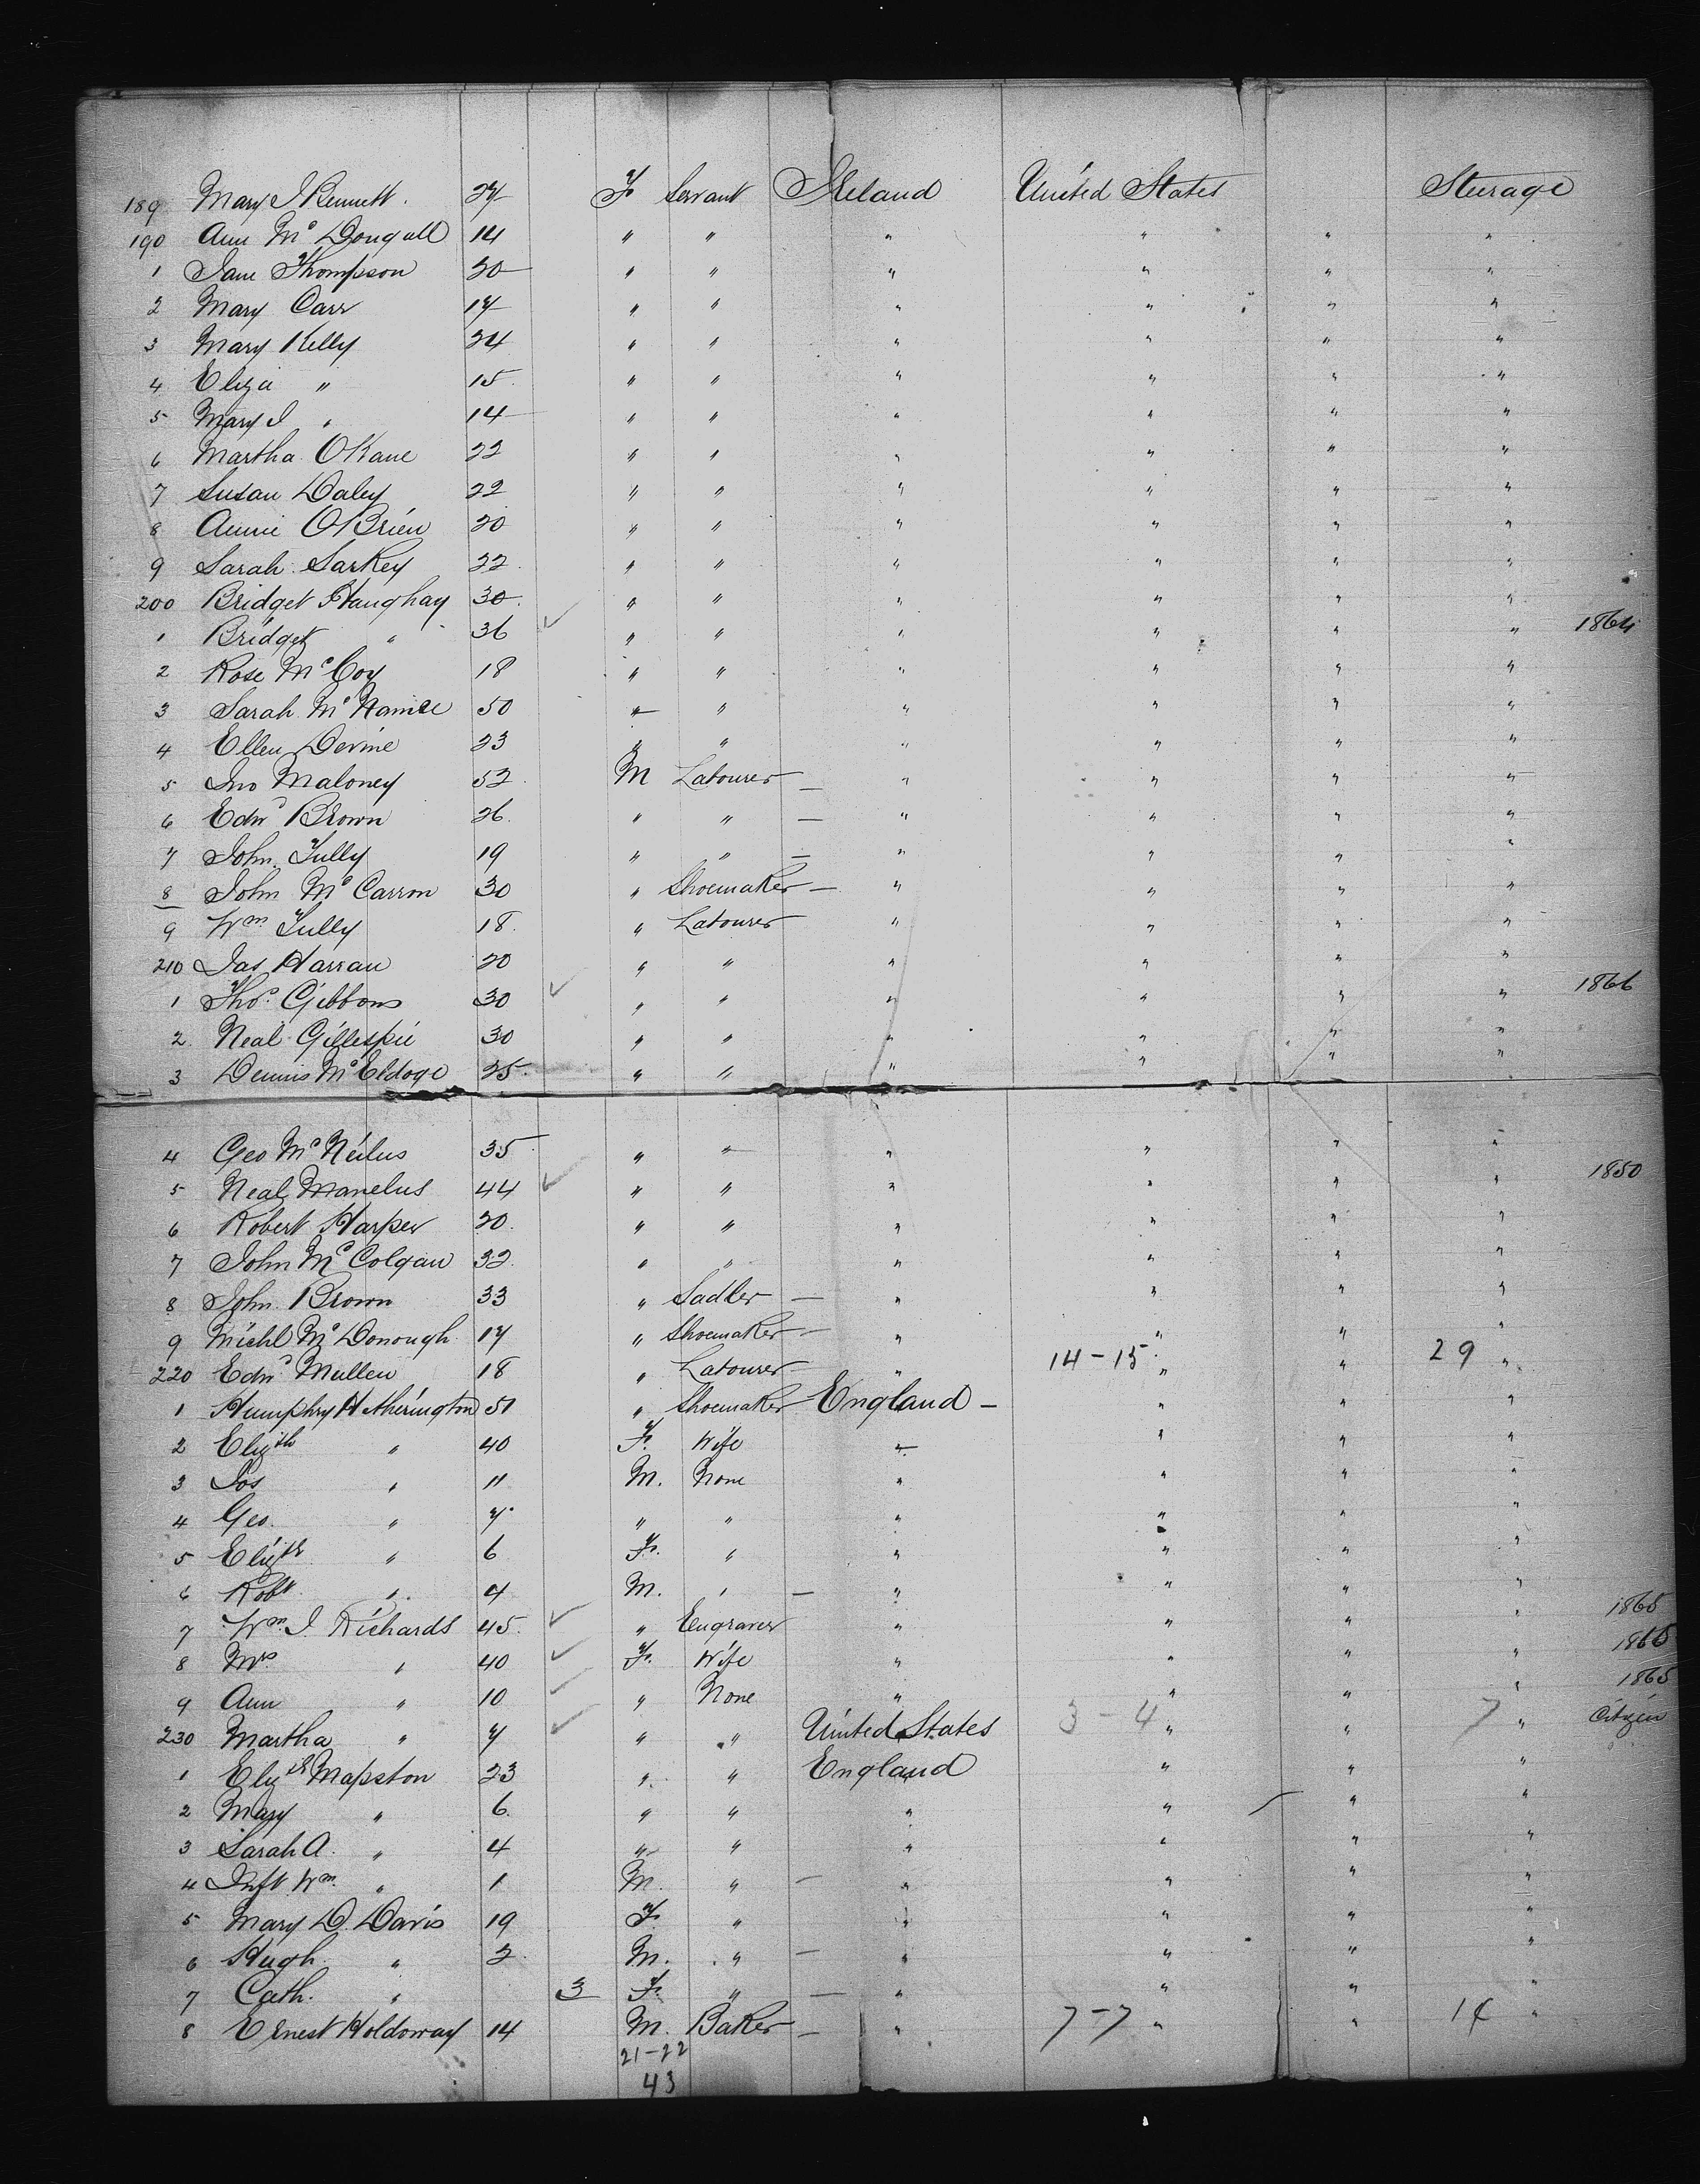 189 Mary J Bennett. 27 F Servant Ireland United States Steerage
190 Ann McDougall 14 " " " " " "
1 Jane Thompson 20 " " " " " "
2 Mary Carr 17 " " " " " "
3 Mary Kelly 24 " " " " " "
4 Eliza " 15 " " " " " "
5 Mary J " 14 " " " " " "
6 Martha OKane 22 " " " " " "
7 Susan Daley 22 " " " " " "
8 Annie OBrien 20 " " " " " "
9 Sarah Sarkey 22 " " " " " "
200 Bridget Haughay 30 " " " " " "
1 Bridget " 36 ✓ " " " " " " 1864
2 Rose McCoy 18 " " " " " "
3 Sarah McNamee 50 " " " " " "
4 Ellen Devine 23 " " " " " "
5 Jno Maloney 52 M Labourer — " " " "
6 Edwd Brown 26 " " — " " " "
7 John Tully 19 " " — " " " "
8 John McCarron 30 " Shoemaker — " " " "
9 Wm Tully 18 " Labourer " " " "
210 Jas Harran 20 " " " " " "
1 Thos Gibbons 30 ✓ " " " " " " 1866
2 Neal Gillespie 30 " " " " " "
3 Dennis McEldoge 25 " " " " " "
4 Geo McNeilus 35 " " " " " "
5 Neal Manelus 44 ✓ " " " " " " 1850
6 Robert Harper 20 " " " " " "
7 John McColgan 32 " " " " " "
8 John Brown 33 " Sadler — " " " "
9 Michl McDonough 17 " Shoemaker — " " " "
220 Edwd Mullen 18 " Labourer — " 14-15 " " 29 "
1 Humphry Hetherington 51 " Shoemaker England — " " "
2 Elizth " 40 F. Wife " " " "
3 Jos " 11 M. None " " " "
4 Geo. " 7 " " " " " "
5 Elizth " 6 F. " " " " "
6 Robt " 4 M. " — " " " "
7 Wm. J. Richards 45 ✓ " Engraver " " " " 1865
8 Mrs " 40 ✓ F. Wife " " " " 1865
9 Ann " 10 ✓ " None " " " " 1865
230 Martha " 7 ✓ " " United States 3-4 " " 7 " Citizen
1 Elizth Mapston 23 " " England " " "
2 Mary " 6 " " " " " "
3 Sarah A. " 4 " " " " " "
4 Inft Wm. " 1 M. " — " " " "
5 Mary D. Davis 19 F. " " " " "
6 Hugh " 2 M. " — " " " "
7 Cath. " 3 F. " — " " " "
8 Ernest Holdoway 14 M. Baker — " 7-7 " " 14 "
21-22
43